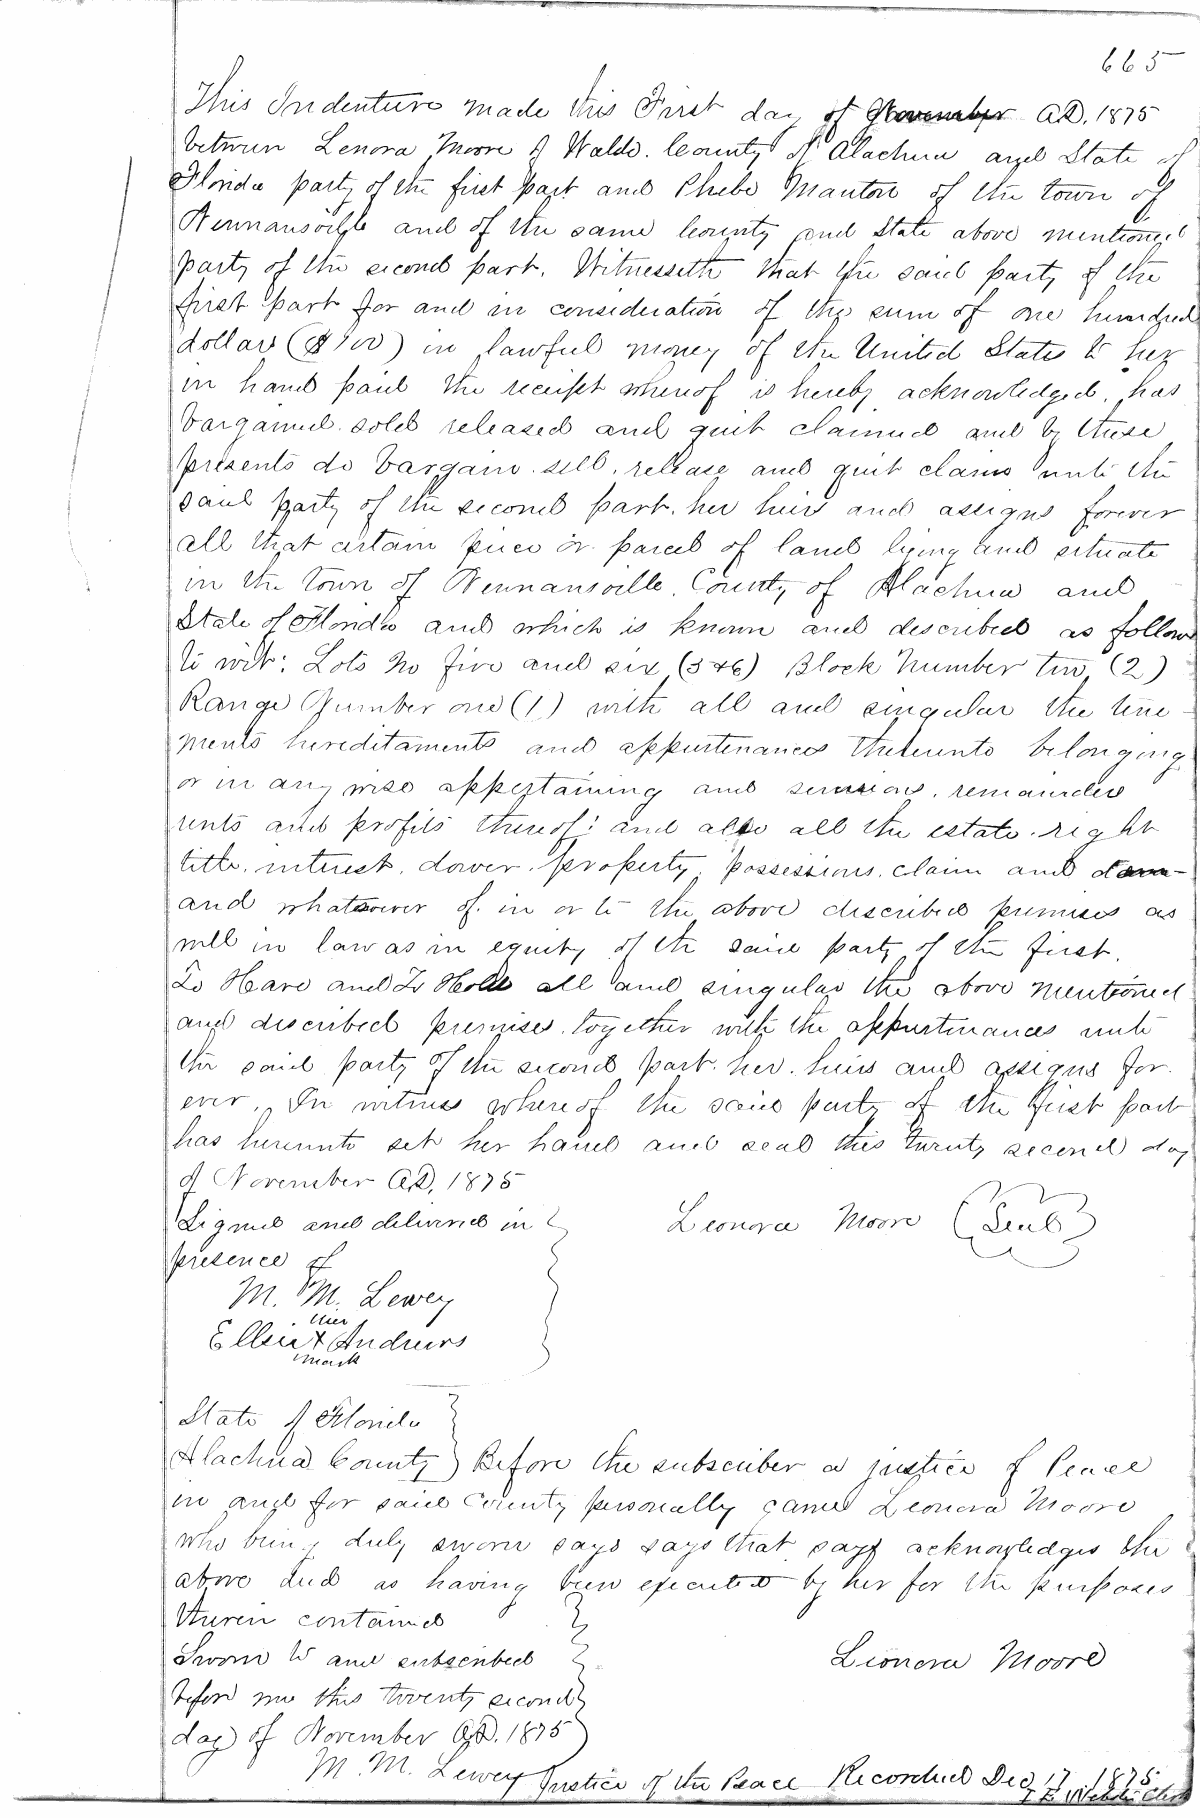 665
This Indenture made this First day of November A.D. 1875
between Lenora Moore of Waldo. County of Alachua and State of
Florida party of the first part and Phebe Manton of the town of
Newnansville and of the same County and State above mentioned
party of the second part. Witnesseth that the said party of the
first part for and in consideration of the sum of one hundred
dollars ($100) in lawful money of the United States to her
in hand paid the receipt whereof is hereby acknowledged. has
bargained. sold released and quit claimed and by these
presents do bargain. sell. release and quit claim unto the
said party of the second part. her heirs and assigns forever
all that certain piece or parcel of land lying and situate
in the town of Newnansville. County of Alachua and
State of Florida and which is known and described as follows
to wit: Lots No five and six (5 & 6) Block Number two (2)
Range Number one (1) with all and singular the tene-
ments hereditaments and appurtenances thereunto belonging
or in any wise appertaining and remainders
rents and profits thereof: and also all the estate. right
title. interest. dower. property. possessions. claim and dem-
and whatsoever of. in or to the above described premises as
well in law as in equity of the said party of the first.
To Have and To Hold all and singular the above mentioned
and described premises. together with the appurtenances unto
the said party of the second part. her. heirs and assigns for.
ever. In witness whereof the said party of the first part
has hereunto set her hand and seal this twenty second day
of November A.D. 1875
Signed and delivered in
presence of
Leonora Moore (Seal)
M. M. Lewey
hier
Ellsie X Andrews
mark
State of Florida
Alachua County } Before the subscriber a justice of Peace
in and for said County personally came Leonora Moore
who being duly sworn says says that says acknowledges the
above deed as having been executed by her for the purposes
therein contained
Sworn to and subscribed
before me this twenty second
day of November A.D. 1875
Leonora Moore
M. M. Lewey Justice of the Peace Recorded Dec 17 1875